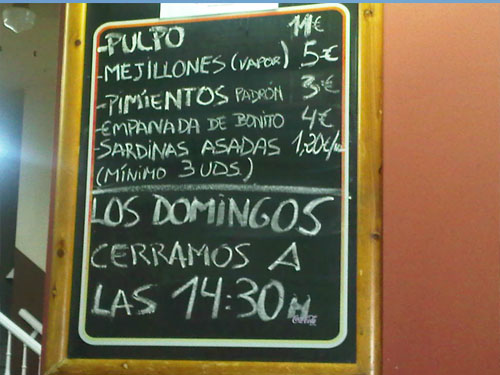 -PULPO 11€
-MEJILLONES (VAPOR) 5€
-PIMIENTOS PADRÓN 3€
-EMPANADA DE BONITO 4€
-SARDINAS ASADAS 1,20€/
(MÍNIMO 3 UDS.)
LOS DOMINGOS
CERRAMOS A
LAS 14:30 H
Coca-Cola